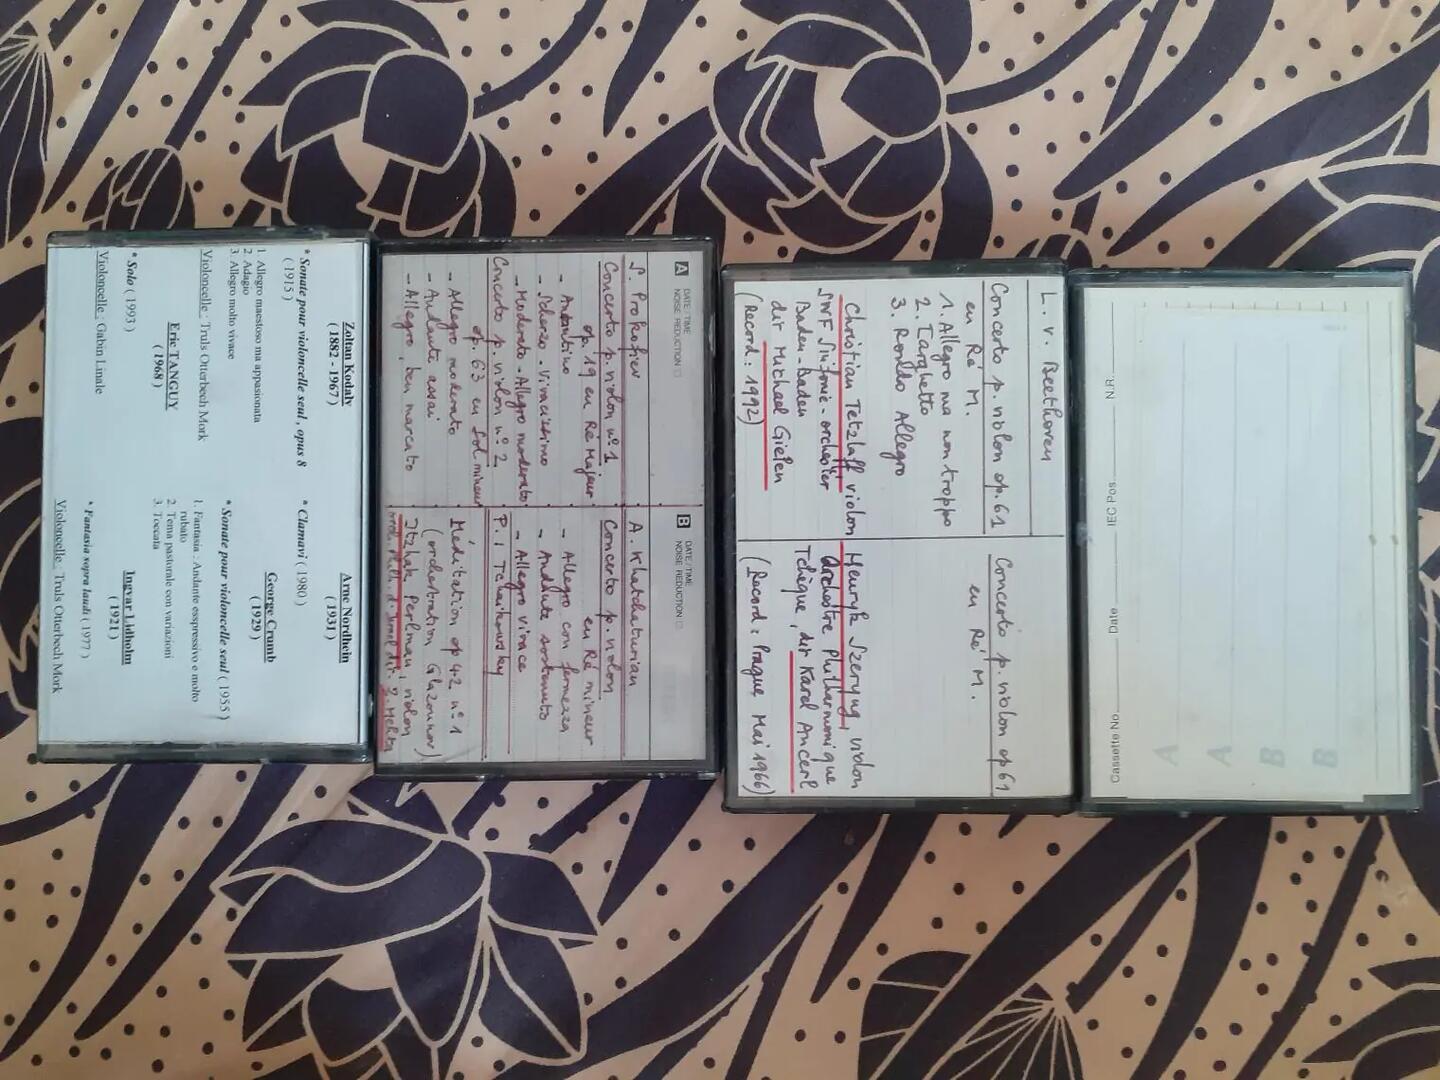 Zoltan Kodaly
( 1882 - 1967 )
* Sonate pour violoncelle seul, opus 8
( 1915 )
1 Allegro maestoso ma appasionata
2. Adagio
3. Allegro molto vivace
Violoncelle : Truls Otterbech Mork
Eric TANGUY
(1968)
* Solo ( 1993 )
Violoncelle : Gaban Linale
Arne Nordhein
(1931)
* Clamavi ( 1980 )
George Crumb
(1929)
* Sonate pour violoncelle seul ( 1955 )
1. Fantasia : Andante esspressivo e molto
rubato
2. Tema pastorale con variazioni
3. Toccata
Ingvar Lidholm
(1921)
* Fantasia sopra laudi ( 1977 )
Violoncelle : Truls Otterbech Mork
A DATE / TIME
NOISE REDUCTION
S. Prokofiev
Concerto p. violon n° 1
op. 19 en Ré Majeur
- Andantino
- Scherzo - Vivacissimo
- Moderato - Allegro moderato
Concerto p. violon n° 2
op. 63 en Sol mineur
- Allegro moderato
- Andante assai
- Allegro, ben marcato
B DATE / TIME
NOISE REDUCTION
A. Khatchaturian
Concerto p. violon
en Ré mineur
- Allegro con fermezza
- Andante sostenuto
- Allegro vivace
P. I Tchaikowsky
Méditation op 42 n° 1
(orchestration Glazounov)
Itzhak Perlman, violon
orch. Philh. d. Israel dir. Z. Mehta
L. v. Beethoven
Concerto p. violon op. 61
en Ré M.
1. Allegro ma non troppo
2. Larghetto
3. Rondo Allegro
Christian Tetzlaff violon
SWF Sinfonie-orchester
Baden-Baden
dir Michael Gielen
(Record : 1992)
Concerto p. violon op 61
en Ré M.
Henryk Szeryng violon
Orchestre Philharmonique
Tchèque, dir Karel Ancerl
(Record : Prague Mai 1966)
N.R. IEC Pos. Date Cassette No
A
A
B
B